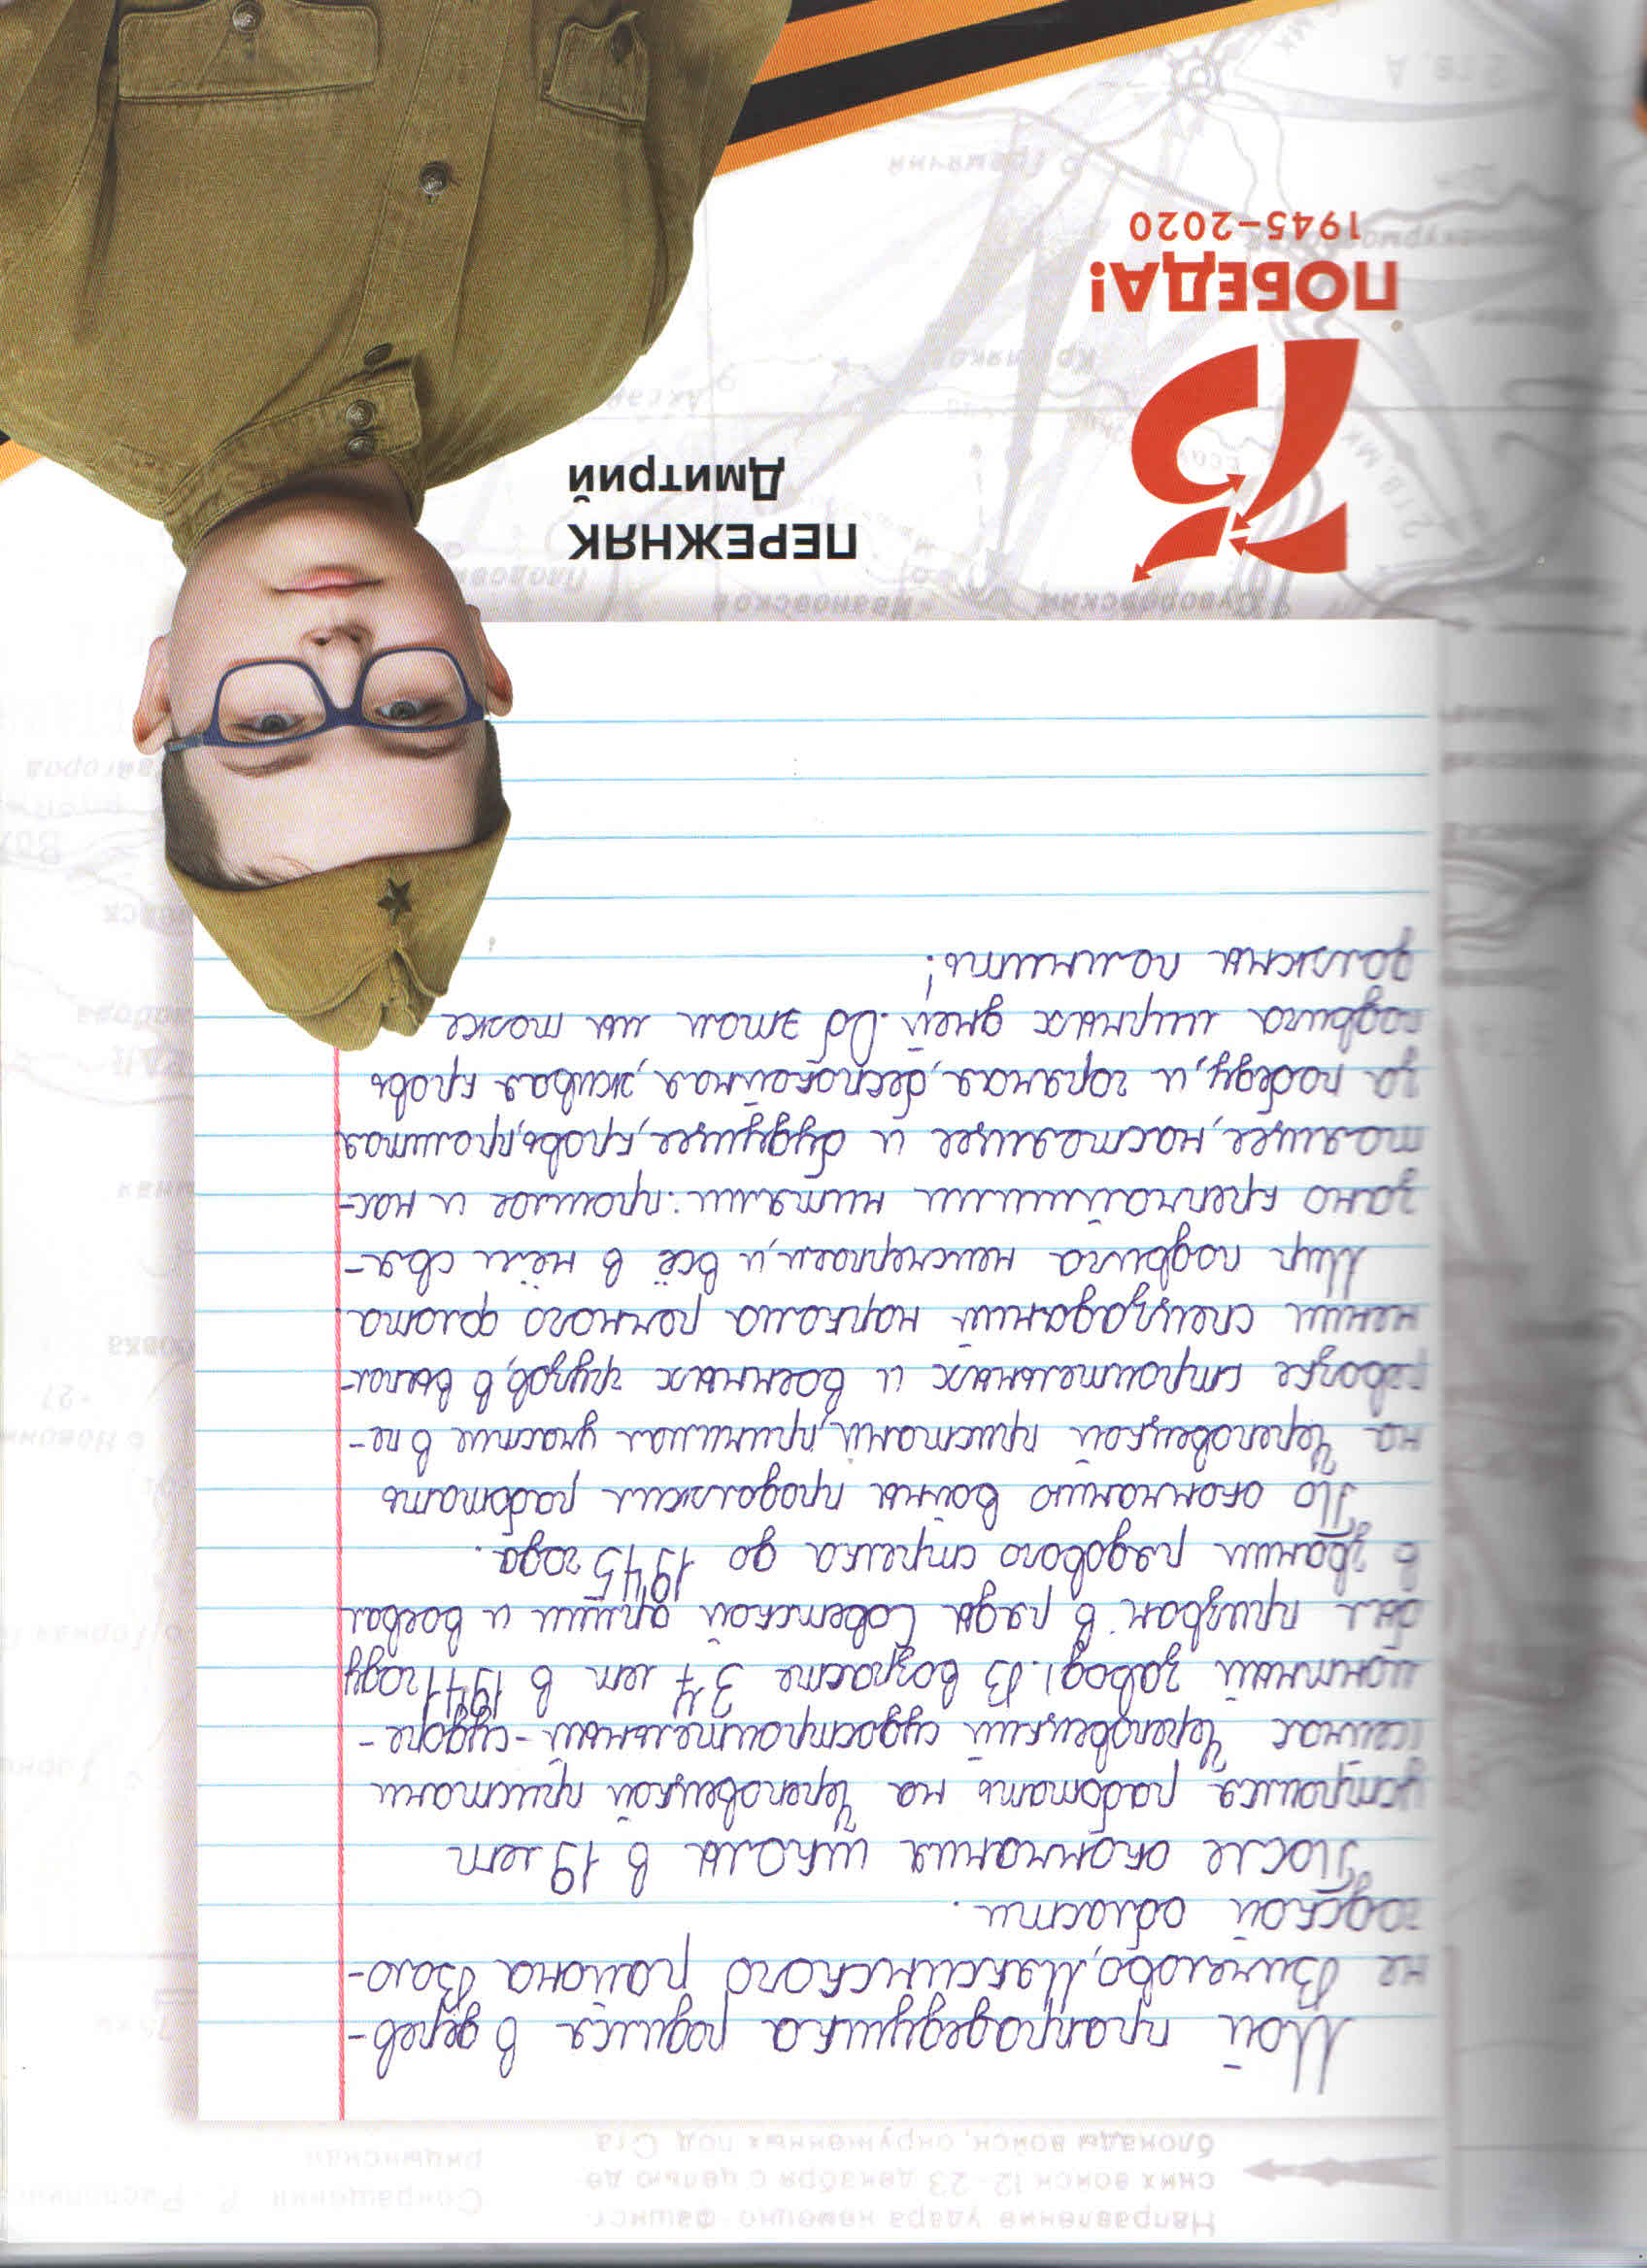 Направление удара немецко-фашист-
ских войск 12-23 декабря с целью де-
блокады войск, окруженных под Ста
Сокращения
Мой прапрадедушка родился в дерев-
не Вичелово, Мяксинского района Воло-
годской области.
После окончания школы в 19 лет
устроился работать на Череповецкой пристани
(сейчас Череповецкий судостроительный-судоре-
монтный завод). В возрасте 37 лет в 1941 году
был призван в ряды Советской армии и воевал
в звании рядового стрелка до 1945 года.
По окончанию войны продолжил работать
на Череповецкой пристани, принимал участие в пе-
ревозке строительных и военных грузов, в выпол-
нении спецзаданий наркома речного флота.
Мир подвига неисчерпаем, и всё в нём свя-
зано крепчайшими нитями: прошлое и нас-
тоящее, настоящее и будущее, кровь, пролитая
за победу, и горячая, беспокойная, живая кровь
подвига мирных дней. Об этом мы тоже
должны помнить!
Суворовский
Ивановское
75
ПЕРЕЖНЯК
Дмитрий
ПОБЕДА!
1945–2020
Гремячий
2 гв. А